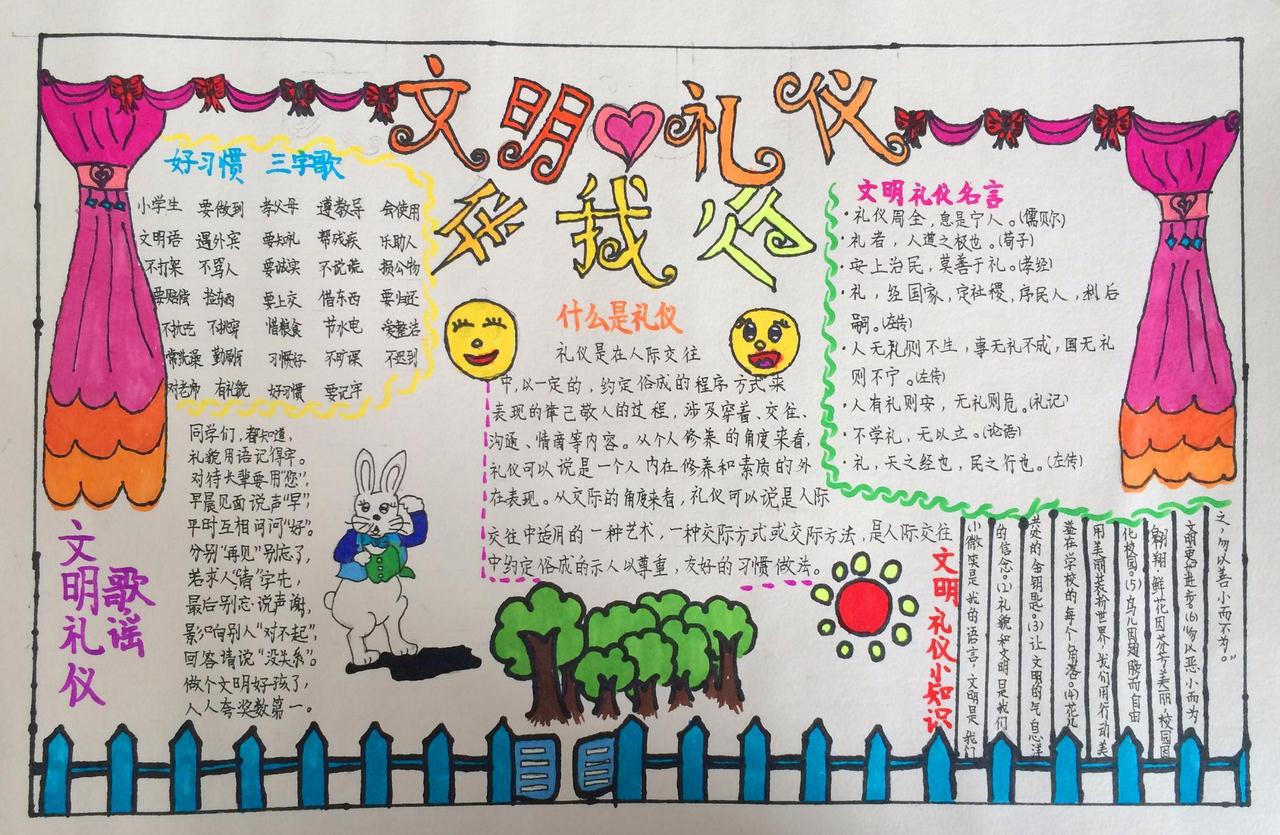 文明礼仪
伴我行
好习惯 三字歌
小学生 要做到 孝父母 遵教导 会使用
文明语 遇外宾 要知礼 帮残疾 乐助人
不打架 不骂人 要诚实 不说谎 损公物
要赔偿 拾东西 要上交 借东西 要归还
不挑吃 不挑穿 惜粮食 节水电 爱整洁
常洗澡 勤刷牙 习惯好 不旷课 不迟到
对老师 有礼貌 好习惯 要记牢
同学们,都知道,
礼貌用语记得牢。
对待长辈要用“您”,
早晨见面说声“早”,
平时互相问问“好”。
分别“再见”别忘了,
若求人“请”字先,
最后别忘说声谢,
影响别人“对不起”,
回答请说“没关系”。
做个文明好孩了,
人人夸奖数第一。
文明礼仪
歌谣
什么是礼仪
礼仪是在人际交往
中,以一定的,约定俗成的程序方式来
表现的律己敬人的过程,涉及穿着、交往、
沟通、情商等内容。从个人修养的角度来看,
礼仪可以说是一个人内在修养和素质的外
在表现。从交际的角度来看,礼仪可以说是人际
交往中适用的一种艺术,一种交际方式或交际方法,是人际交往
中约定俗成的示人以尊重,友好的习惯做法。
文明礼仪名言
·礼仪周全,息是宁人。(儒贝尔)
·礼者,人道之极也。(荀子)
·安上治民,莫善于礼。(孝经)
·礼,经国家,定社稷,序民人,利后
嗣。(左传)
·人无礼则不生,事无礼不成,国无礼
则不宁。(左传)
·人有礼则安,无礼则危。(礼记)
·不学礼,无以立。(论语)
·礼,天之经也,民之行也。(左传)
文明礼仪小知识
小微笑是我的语言,文明是我们
的信念。(2)礼貌如文明是我们
共处的金钥匙。(3)让文明的气息洋
溢在学校的每个角落。(4)花儿
用美丽装扮世界,我们用行动美
化校园。(5)鸟儿因翅膀而自由
翱翔,鲜花因芬芳美丽,校园因
文明更加进步。(6)“勿以恶小而为
之,勿以善小而不为。”